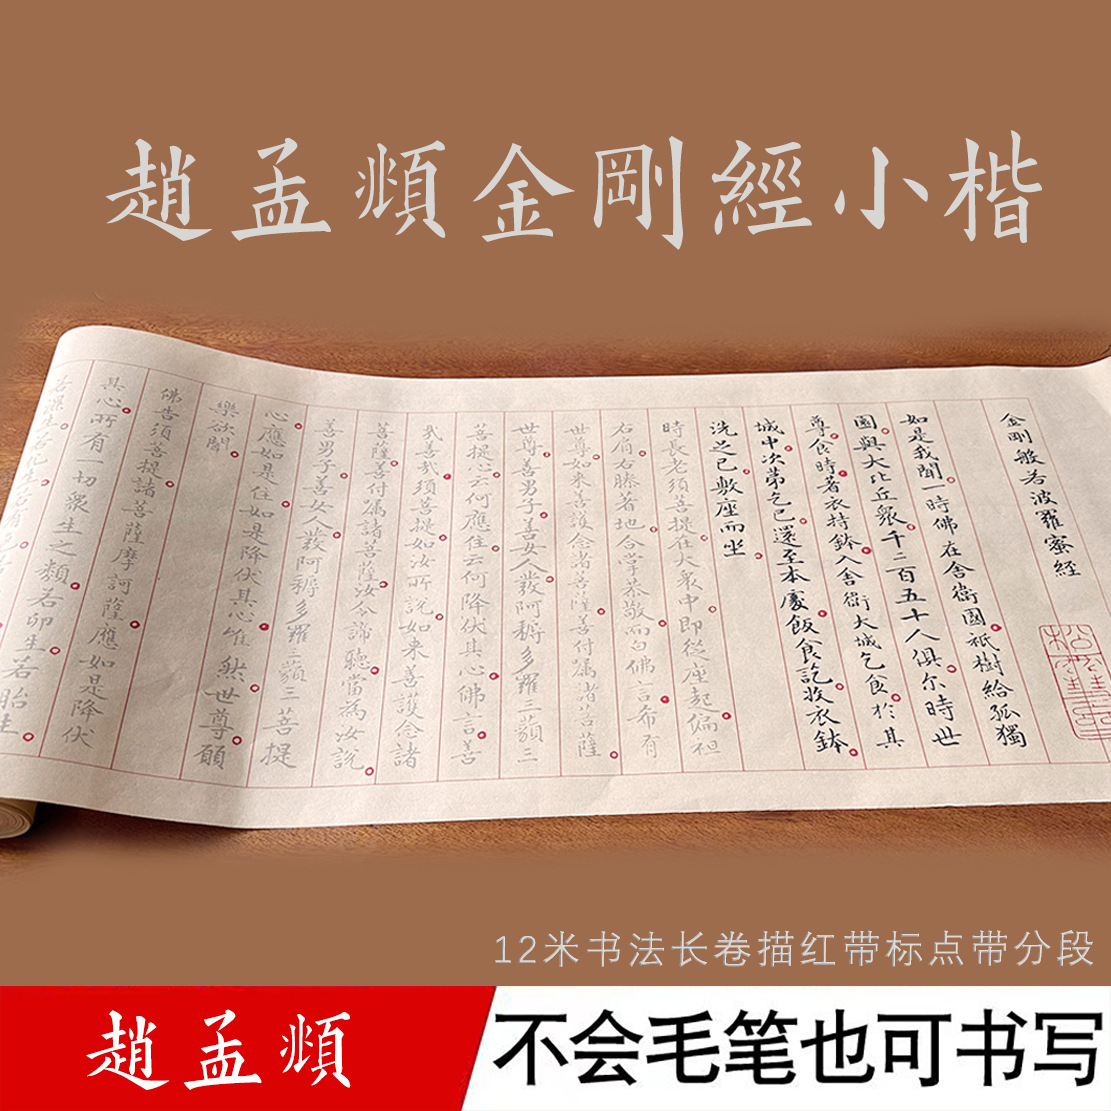 趙孟頫金剛經小楷
金剛般若波羅蜜經
如是我聞一時佛在舍衛國祇樹給孤獨
園與大比丘衆千二百五十人俱尔時世
尊食時著衣持鉢入舍衛大城乞食於其
城中次第乞已還至本處飯食訖收衣鉢
洗足已敷座而坐
時長老須菩提在大衆中即從座起偏袒
右肩右膝著地合掌恭敬而白佛言希有
世尊如来善護念諸菩薩善付囑諸菩薩
世尊善男子善女人發阿耨多羅三藐三
菩提心云何應住云何降伏其心佛言善
哉善哉須菩提如汝所說如来善護念諸
菩薩善付囑諸菩薩汝今諦聽當為汝說
善男子善女人發阿耨多羅三藐三菩提
心應如是住如是降伏其心唯然世尊願
樂欲聞
佛告須菩提諸菩薩摩訶薩應如是降伏
其心所有一切衆生之類若卵生若胎生
若濕生若化生若有色
12米书法长卷描红带标点带分段
趙孟頫
不会毛笔也可书写